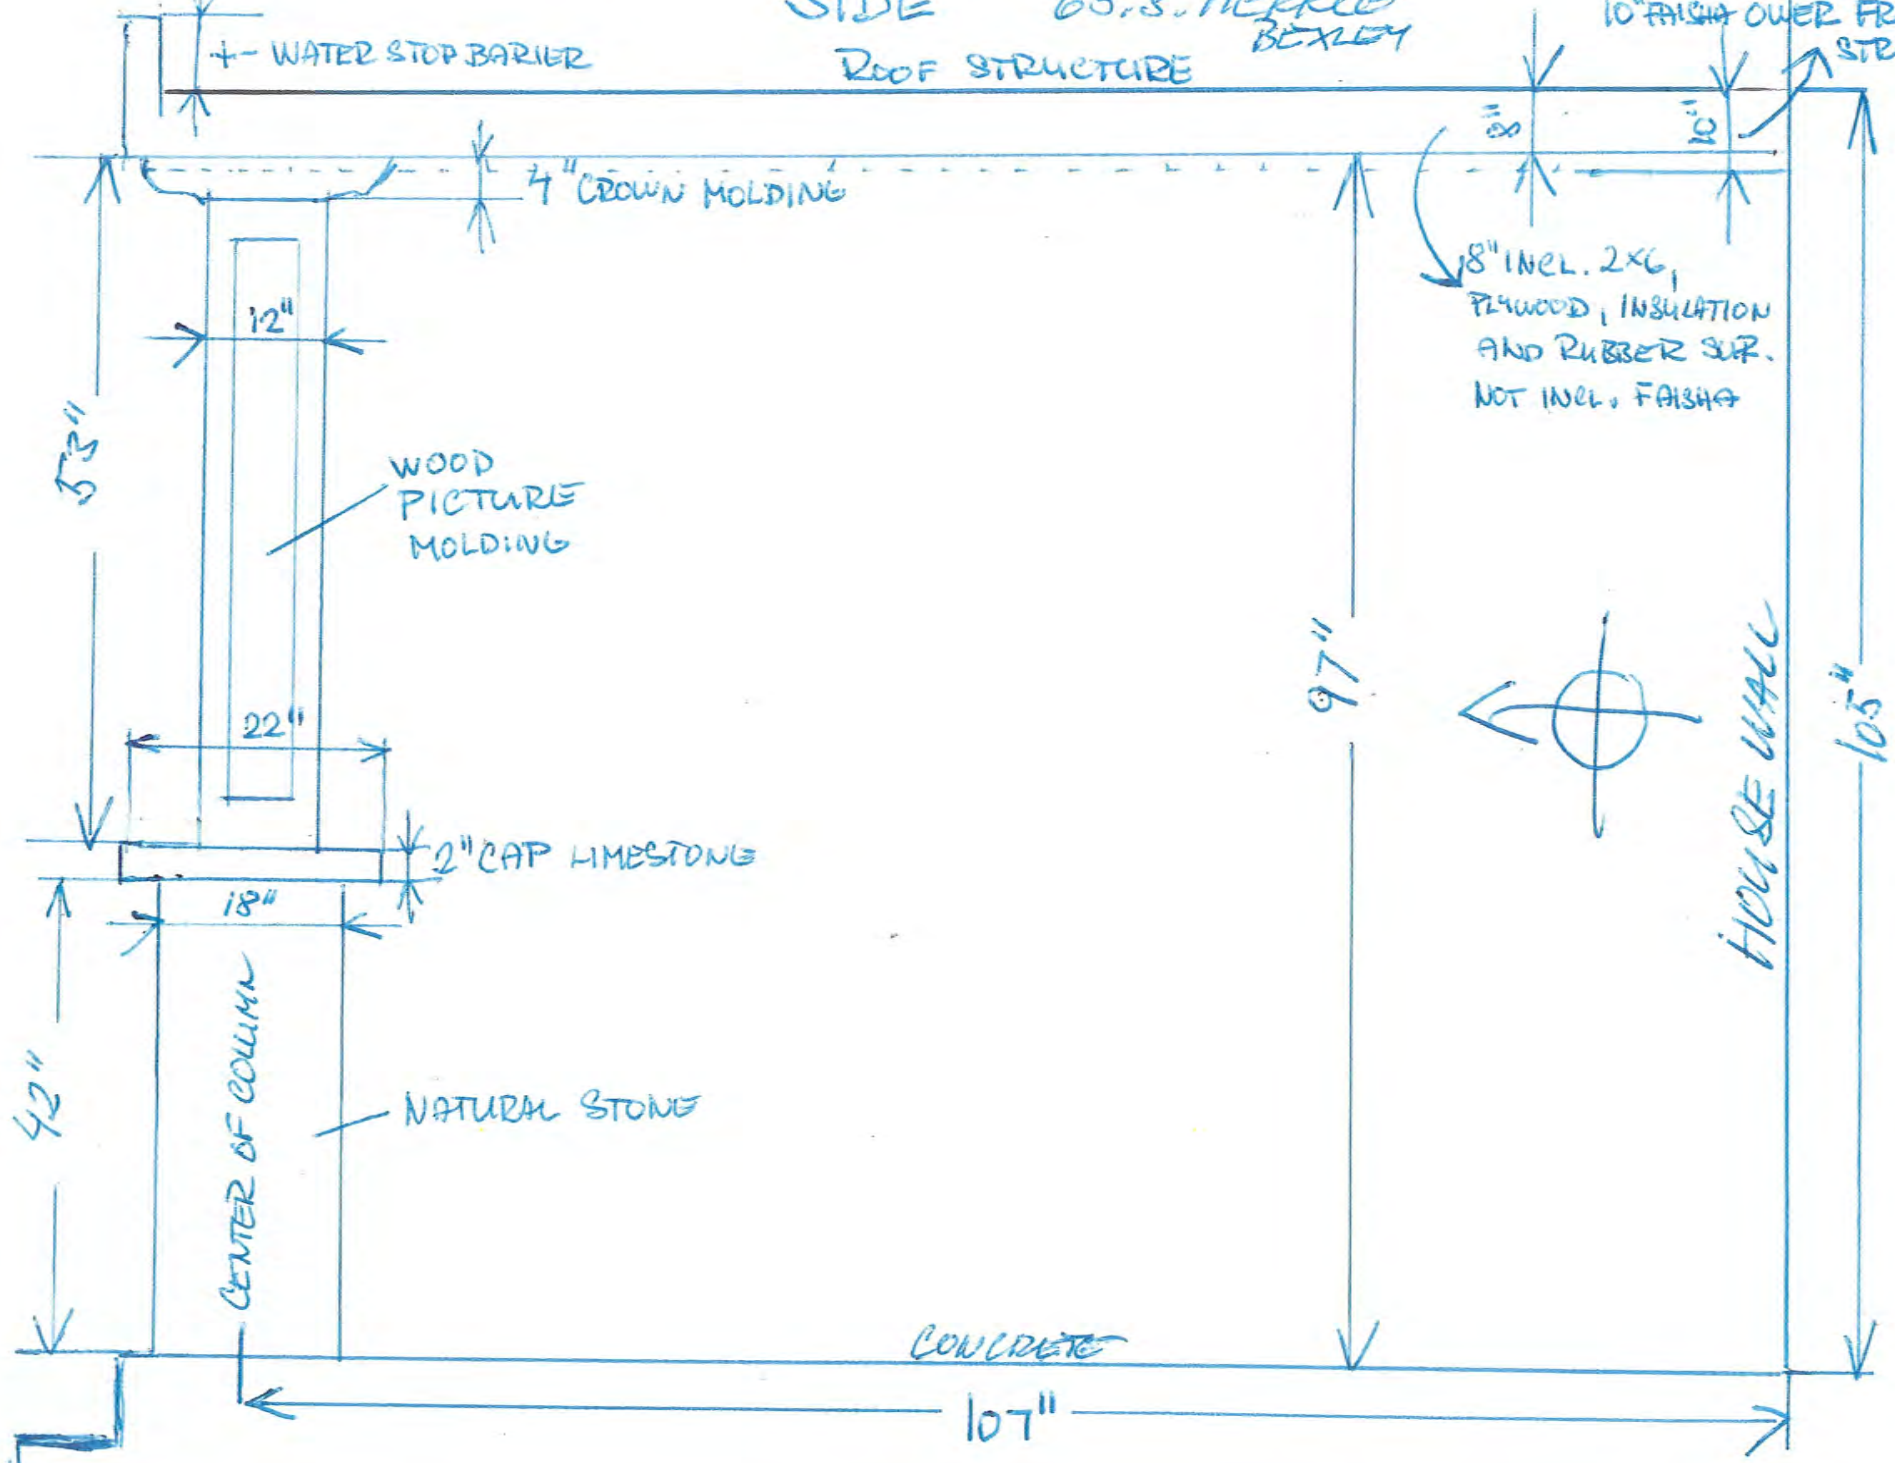 SIDE
BEXLEY
10" FAISHA OWER FR
STR
+- WATER STOP BARIER
ROOF STRUCTURE
8"
10"
4" CROWN MOLDING
8" INCL. 2X6,
PLYWOOD, INSULATION
AND RUBBER SUR.
NOT INCL. FAISHA
12"
53"
WOOD
PICTURE
MOLDING
97"
HOUSE WALL
105"
22"
2" CAP LIMESTONE
18"
CENTER OF COLUMN
42"
NATURAL STONE
CONCRETE
107"